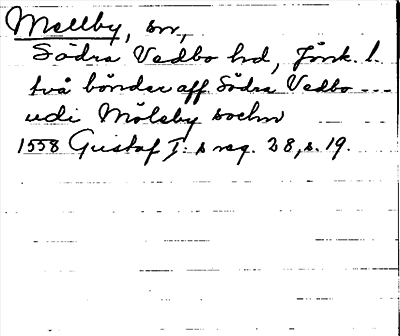 Mellby, sn,
Södra Vedbo hd, Jönk. l.
två bönder aff Södra Vedbo ---
udi Mölsby sochn
1558 Gustaf I:s reg. 28, s. 19.